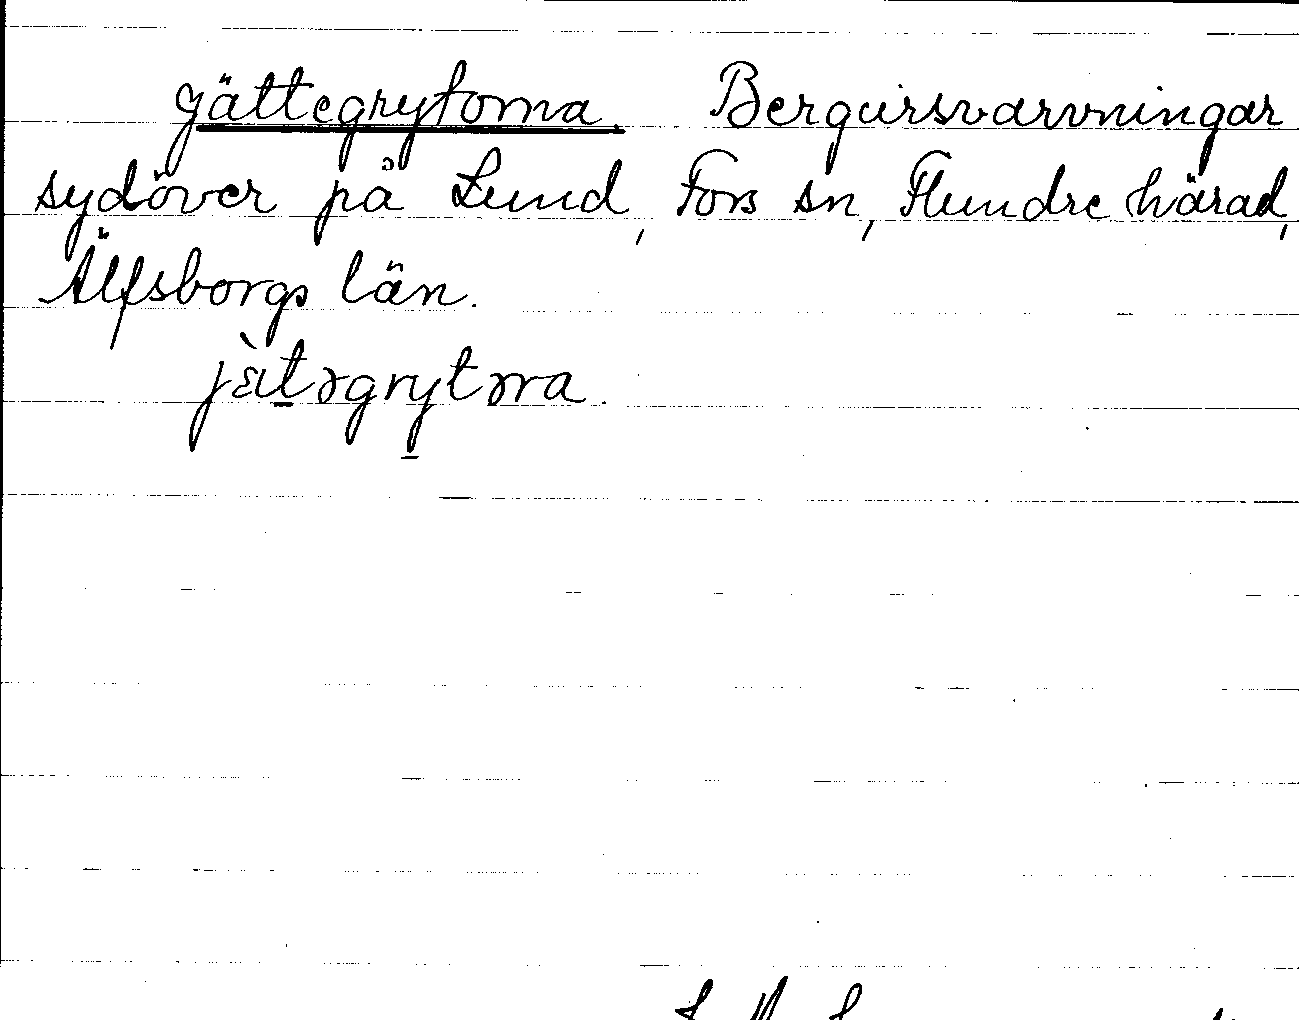 jättegrytorna. Bergursvarvningar
sydöver på Lund, Fors sn, Flundre härad,
Älfsborgs län.
jὲtəgrytərna.